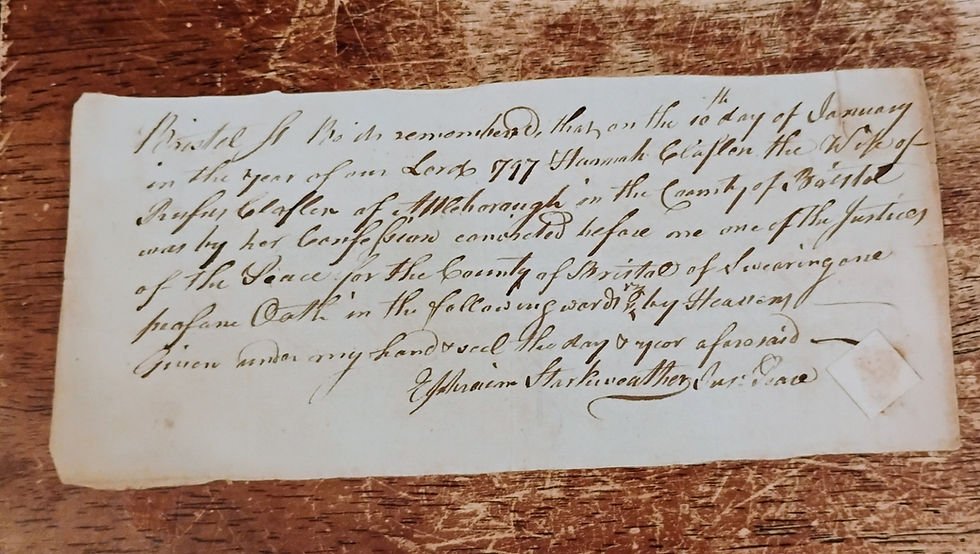 Bristol ss Be it remembered, that, on the 10th day of January
in the year of our Lord 1797 Hannah Claflen the Wife of
Rufus Claflen of Attleborough in the County of Bristol
was by her Confession convicted before me one of the Justices
of the Peace for the County of Bristol of Swearing one
profane Oath in the following words by Heavens
Given under my hand & seal the day & year aforesaid
Ephraim Starkweather Jus: Peace